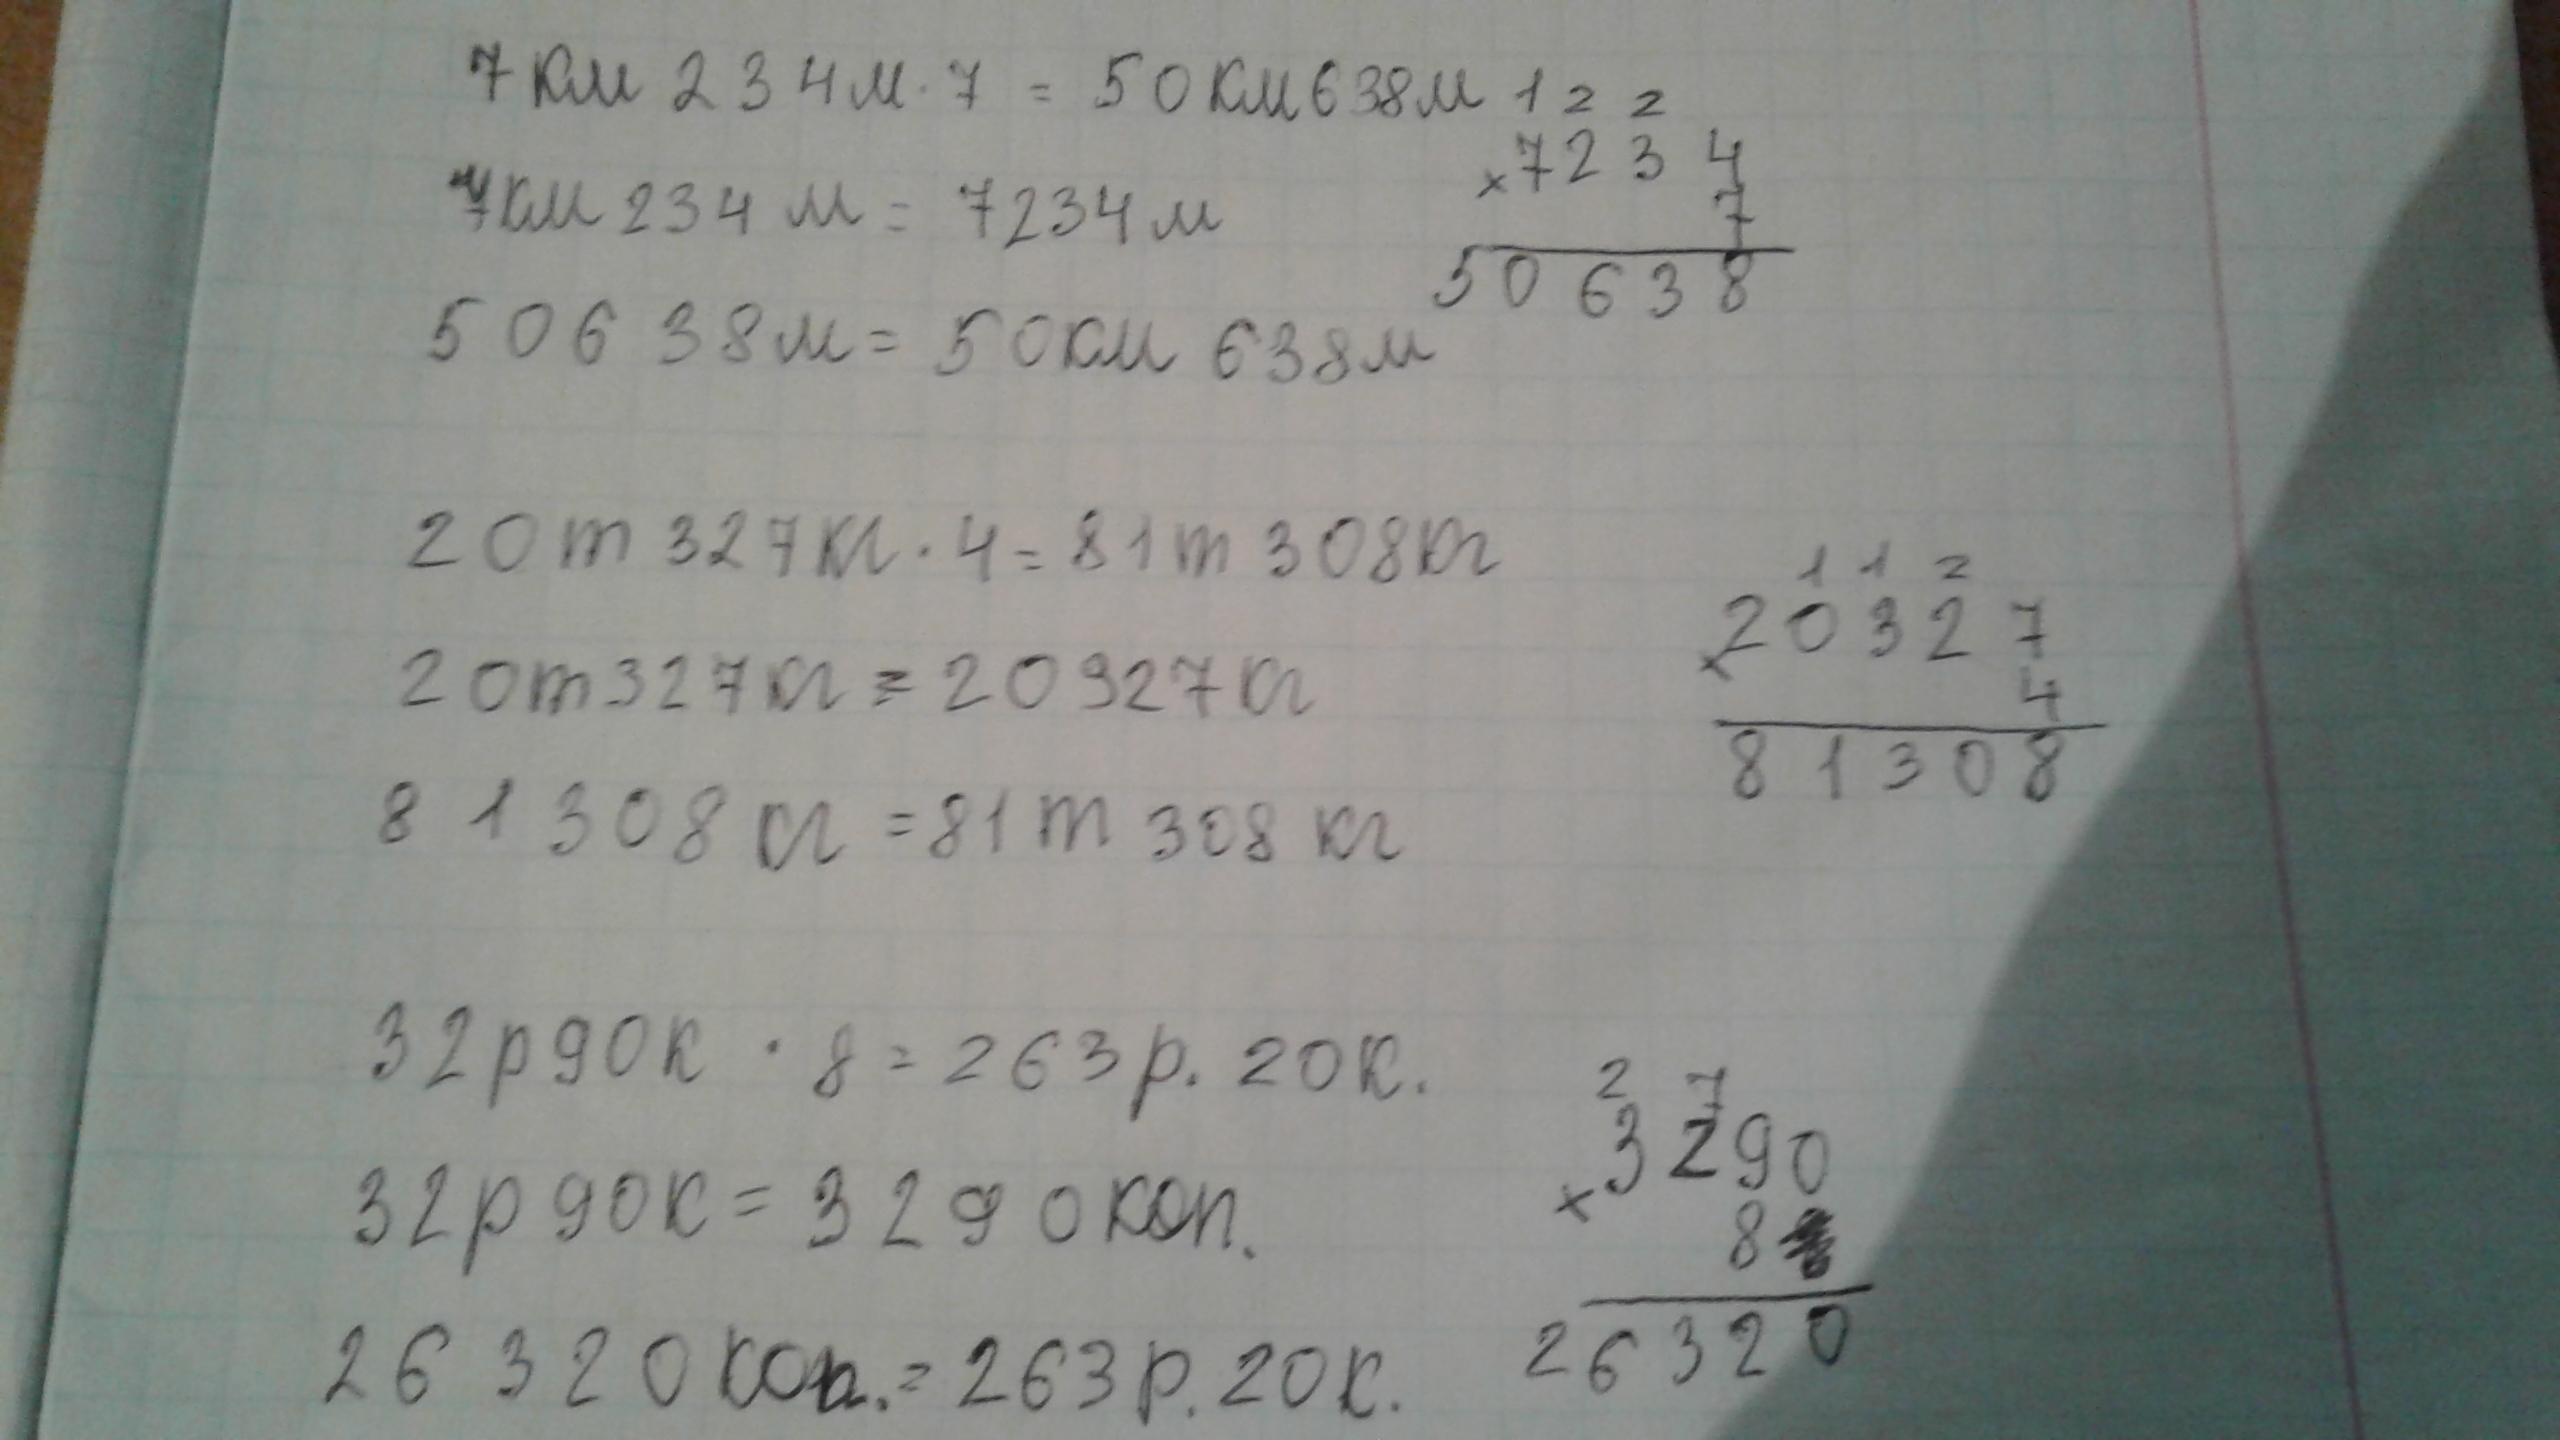 7 км 234 м · 7 = 50 км 638 м
7 км 234 м = 7234 м
50638 м = 50 км 638 м
1 2 2
× 7234
7
50638
20 т 327 кг · 4 = 81 т 308 кг
20 т 327 кг = 20327 кг
81308 кг = 81 т 308 кг
1 1 2
× 20327
4
81308
32 р 90 к · 8 = 263 р. 20 к.
32 р 90 к = 3290 коп.
26320 коп. = 263 р. 20 к.
2 7
× 3290
8
26320